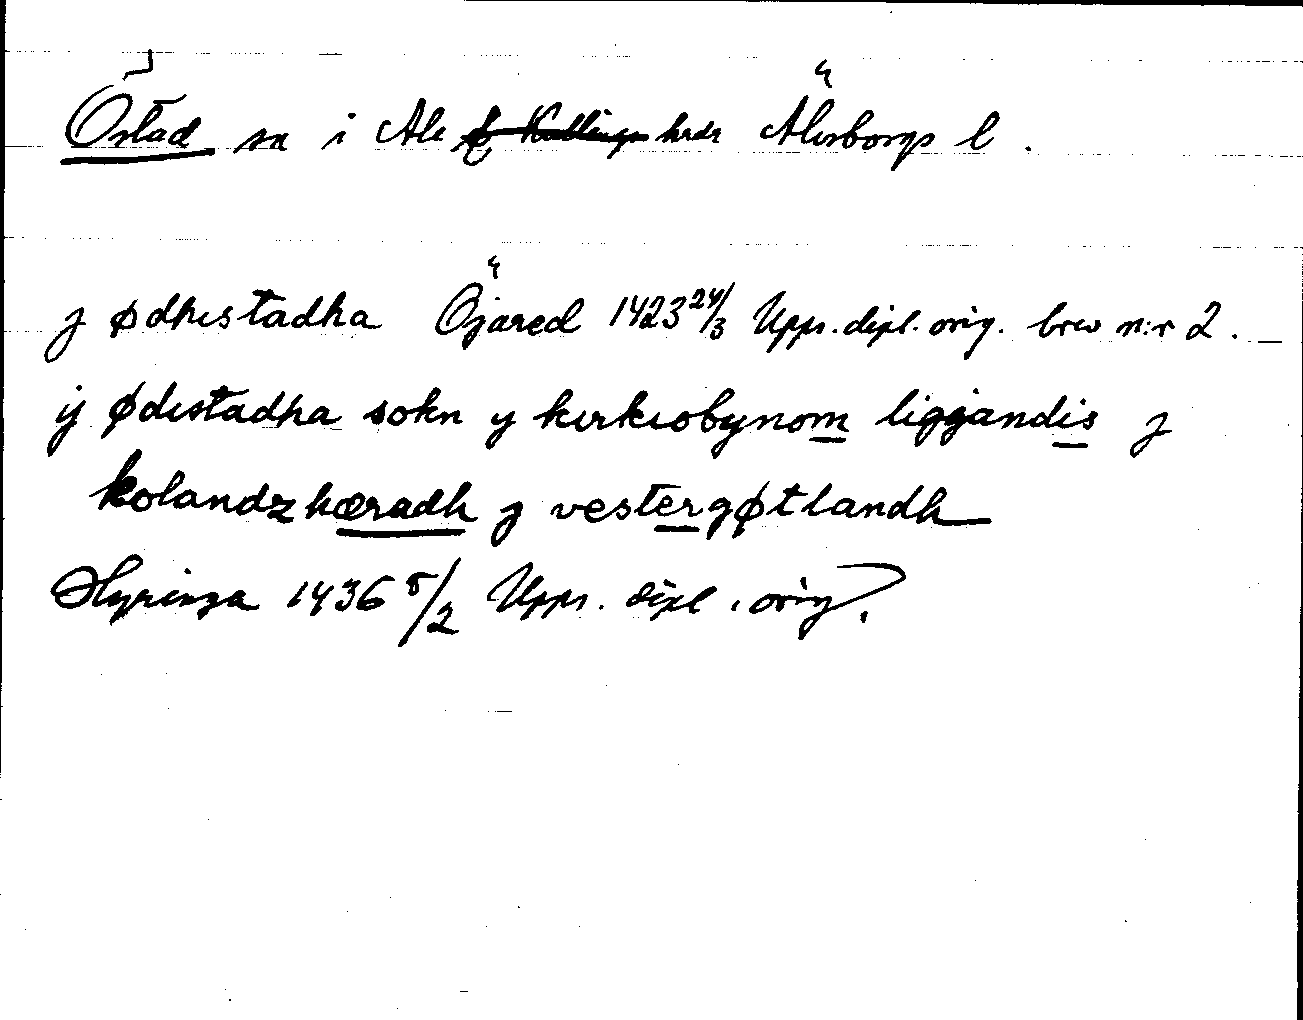 Östad sn i Ale & Kullings hrdr Älvsborgs l.
j ødhestadha Öjared 1423 24/3 Upps. dipl. orig. brev n:r 2.
ij ødestadha sokn y kirkiobynom liggjandis j
kolandzhæradh j vestergøtlandh
1436 5/2 Upps. dipl. orig.